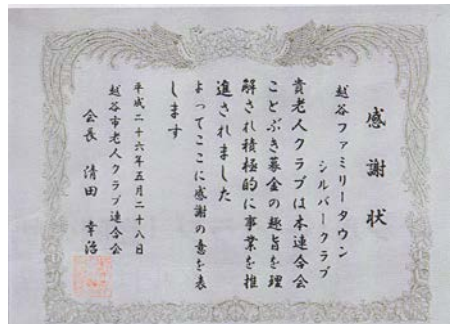 感謝状
越谷ファミリータウン
シルバークラブ
貴老人クラブは本連合会
ことぶき募金の趣旨を理
解され積極的に事業を推
進されました
よってここに感謝の意を表
します
平成二十六年五月二十八日
越谷市老人クラブ連合会
会長 清田 幸治